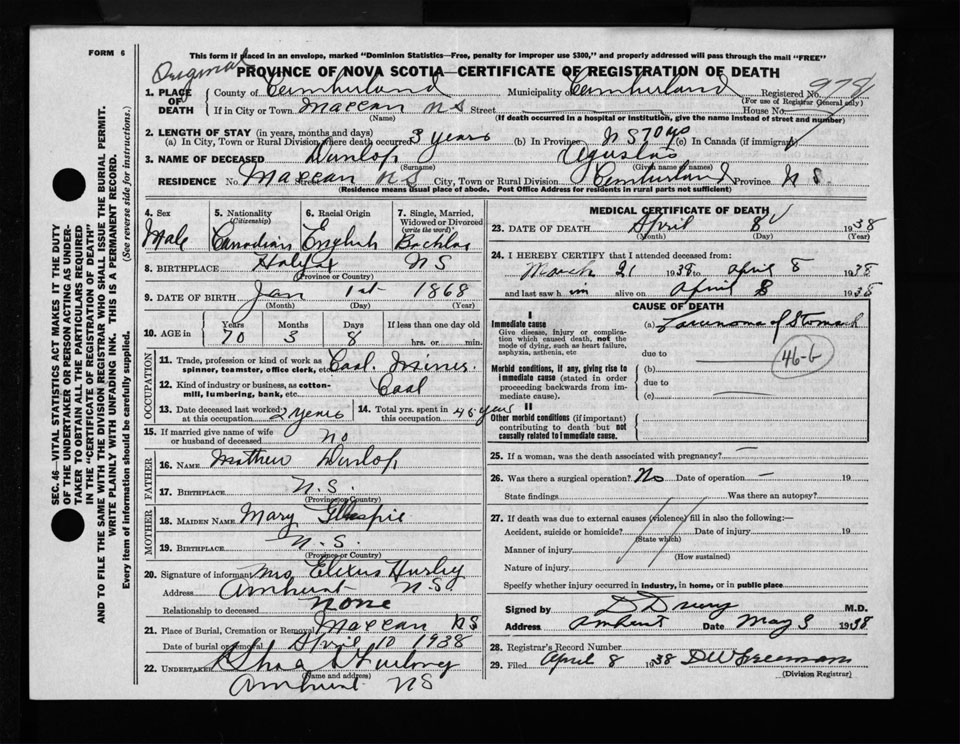 FORM 6
This form if placed in an envelope, marked "Dominion Statistics—Free, penalty for improper use $300," and properly addressed will pass through the mail "FREE"
Original
PROVINCE OF NOVA SCOTIA—CERTIFICATE OF REGISTRATION OF DEATH
1. PLACE OF DEATH County of Cumberland Municipality of Cumberland Registered No.
(For use of Registrar General only)
If in City or Town Maccan N S Street House No.
(Name) (If death occurred in a hospital or institution, give the name instead of street and number)
2. LENGTH OF STAY (in years, months and days)
(a) In City, Town or Rural Division where death occurred 3 years (b) In Province N S 70 yo (c) In Canada (if immigrant)
3. NAME OF DECEASED Dunlop Agustas
(Surname) (Given name or names)
RESIDENCE No. Maccan Street N S City, Town or Rural Division Cumberland Province N S.
(Residence means usual place of abode. Post Office Address for residents in rural parts not sufficient)
4. Sex Male
5. Nationality (Citizenship) Canadian
6. Racial Origin English
7. Single, Married, Widowed or Divorced (write the word) Bachlor
8. BIRTHPLACE Halyfx N S
(Province or Country)
9. DATE OF BIRTH Jan 1st 1868
(Month) (Day) (Year)
10. AGE in Years 70 Months 3 Days 8 If less than one day old hrs. or min.
OCCUPATION
11. Trade, profession or kind of work as spinner, teamster, office clerk, etc. Coal. Mines.
12. Kind of industry or business, as cotton-mill, lumbering, bank, etc. Coal
13. Date deceased last worked at this occupation 2 years 14. Total yrs. spent in this occupation 45 years
15. If married give name of wife or husband of deceased No
FATHER
16. NAME Mathew Dunlop
17. BIRTHPLACE N. S.
(Province or Country)
MOTHER
18. MAIDEN NAME Mary Gillespie
19. BIRTHPLACE N. S.
(Province or Country)
20. Signature of informant Mrs Hurley
Address Amherst N. S.
Relationship to deceased None
21. Place of Burial, Cremation or Removal Maccan N S
Date of burial or removal April 10 1938
22. UNDERTAKER Furlong
(Name and address)
Amherst N S
MEDICAL CERTIFICATE OF DEATH
23. DATE OF DEATH April 8 1938
(Month) (Day) (Year)
24. I HEREBY CERTIFY that I attended deceased from:
March 21 1938 to April 8 1938
and last saw him alive on April 8 1938
CAUSE OF DEATH
I
Immediate cause
Give disease, injury or complication which caused death, not the mode of dying, such as heart failure, asphyxia, asthenia, etc
(a) Carcinoma of Stomach
due to
46-b
Morbid conditions, if any, giving rise to immediate cause (stated in order proceeding backwards from immediate cause).
(b)
due to
(c)
II
Other morbid conditions (if important) contributing to death but not causally related to immediate cause.
25. If a woman, was the death associated with pregnancy? —
26. Was there a surgical operation? No Date of operation — 19
State findings Was there an autopsy?
27. If death was due to external causes (violence) fill in also the following:—
Accident, suicide or homicide? Date of injury 19
(State which)
Manner of injury
(How sustained)
Nature of injury
Specify whether injury occurred in industry, in home, or in public place
Signed by D Drury M.D.
Address Amherst Date May 3 1938
28. Registrar's Record Number
29. Filed April 8 1938 D W Freeman
(Division Registrar)
SEC. 46—VITAL STATISTICS ACT MAKES IT THE DUTY
OF THE UNDERTAKER OR PERSON ACTING AS UNDER-
TAKER TO OBTAIN ALL THE PARTICULARS REQUIRED
IN THE "CERTIFICATE OF REGISTRATION OF DEATH"
AND TO FILE THE SAME WITH THE DIVISION REGISTRAR WHO SHALL ISSUE THE BURIAL PERMIT.
WRITE PLAINLY WITH UNFADING INK. THIS IS A PERMANENT RECORD.
Every item of information should be carefully supplied. (See reverse side for instructions.)